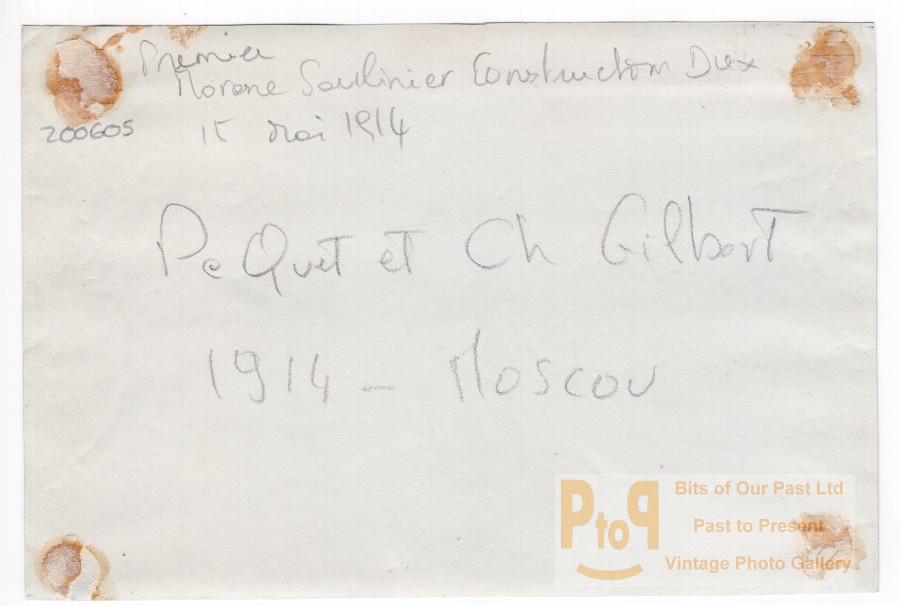 Premier
Morane Saulinier Construction Dux
200605
15 Mai 1914
Pe Quet et Ch Gilbert
1914 - Moscou
PtoP
Bits of Our Past Ltd
Past to Present
Vintage Photo Gallery